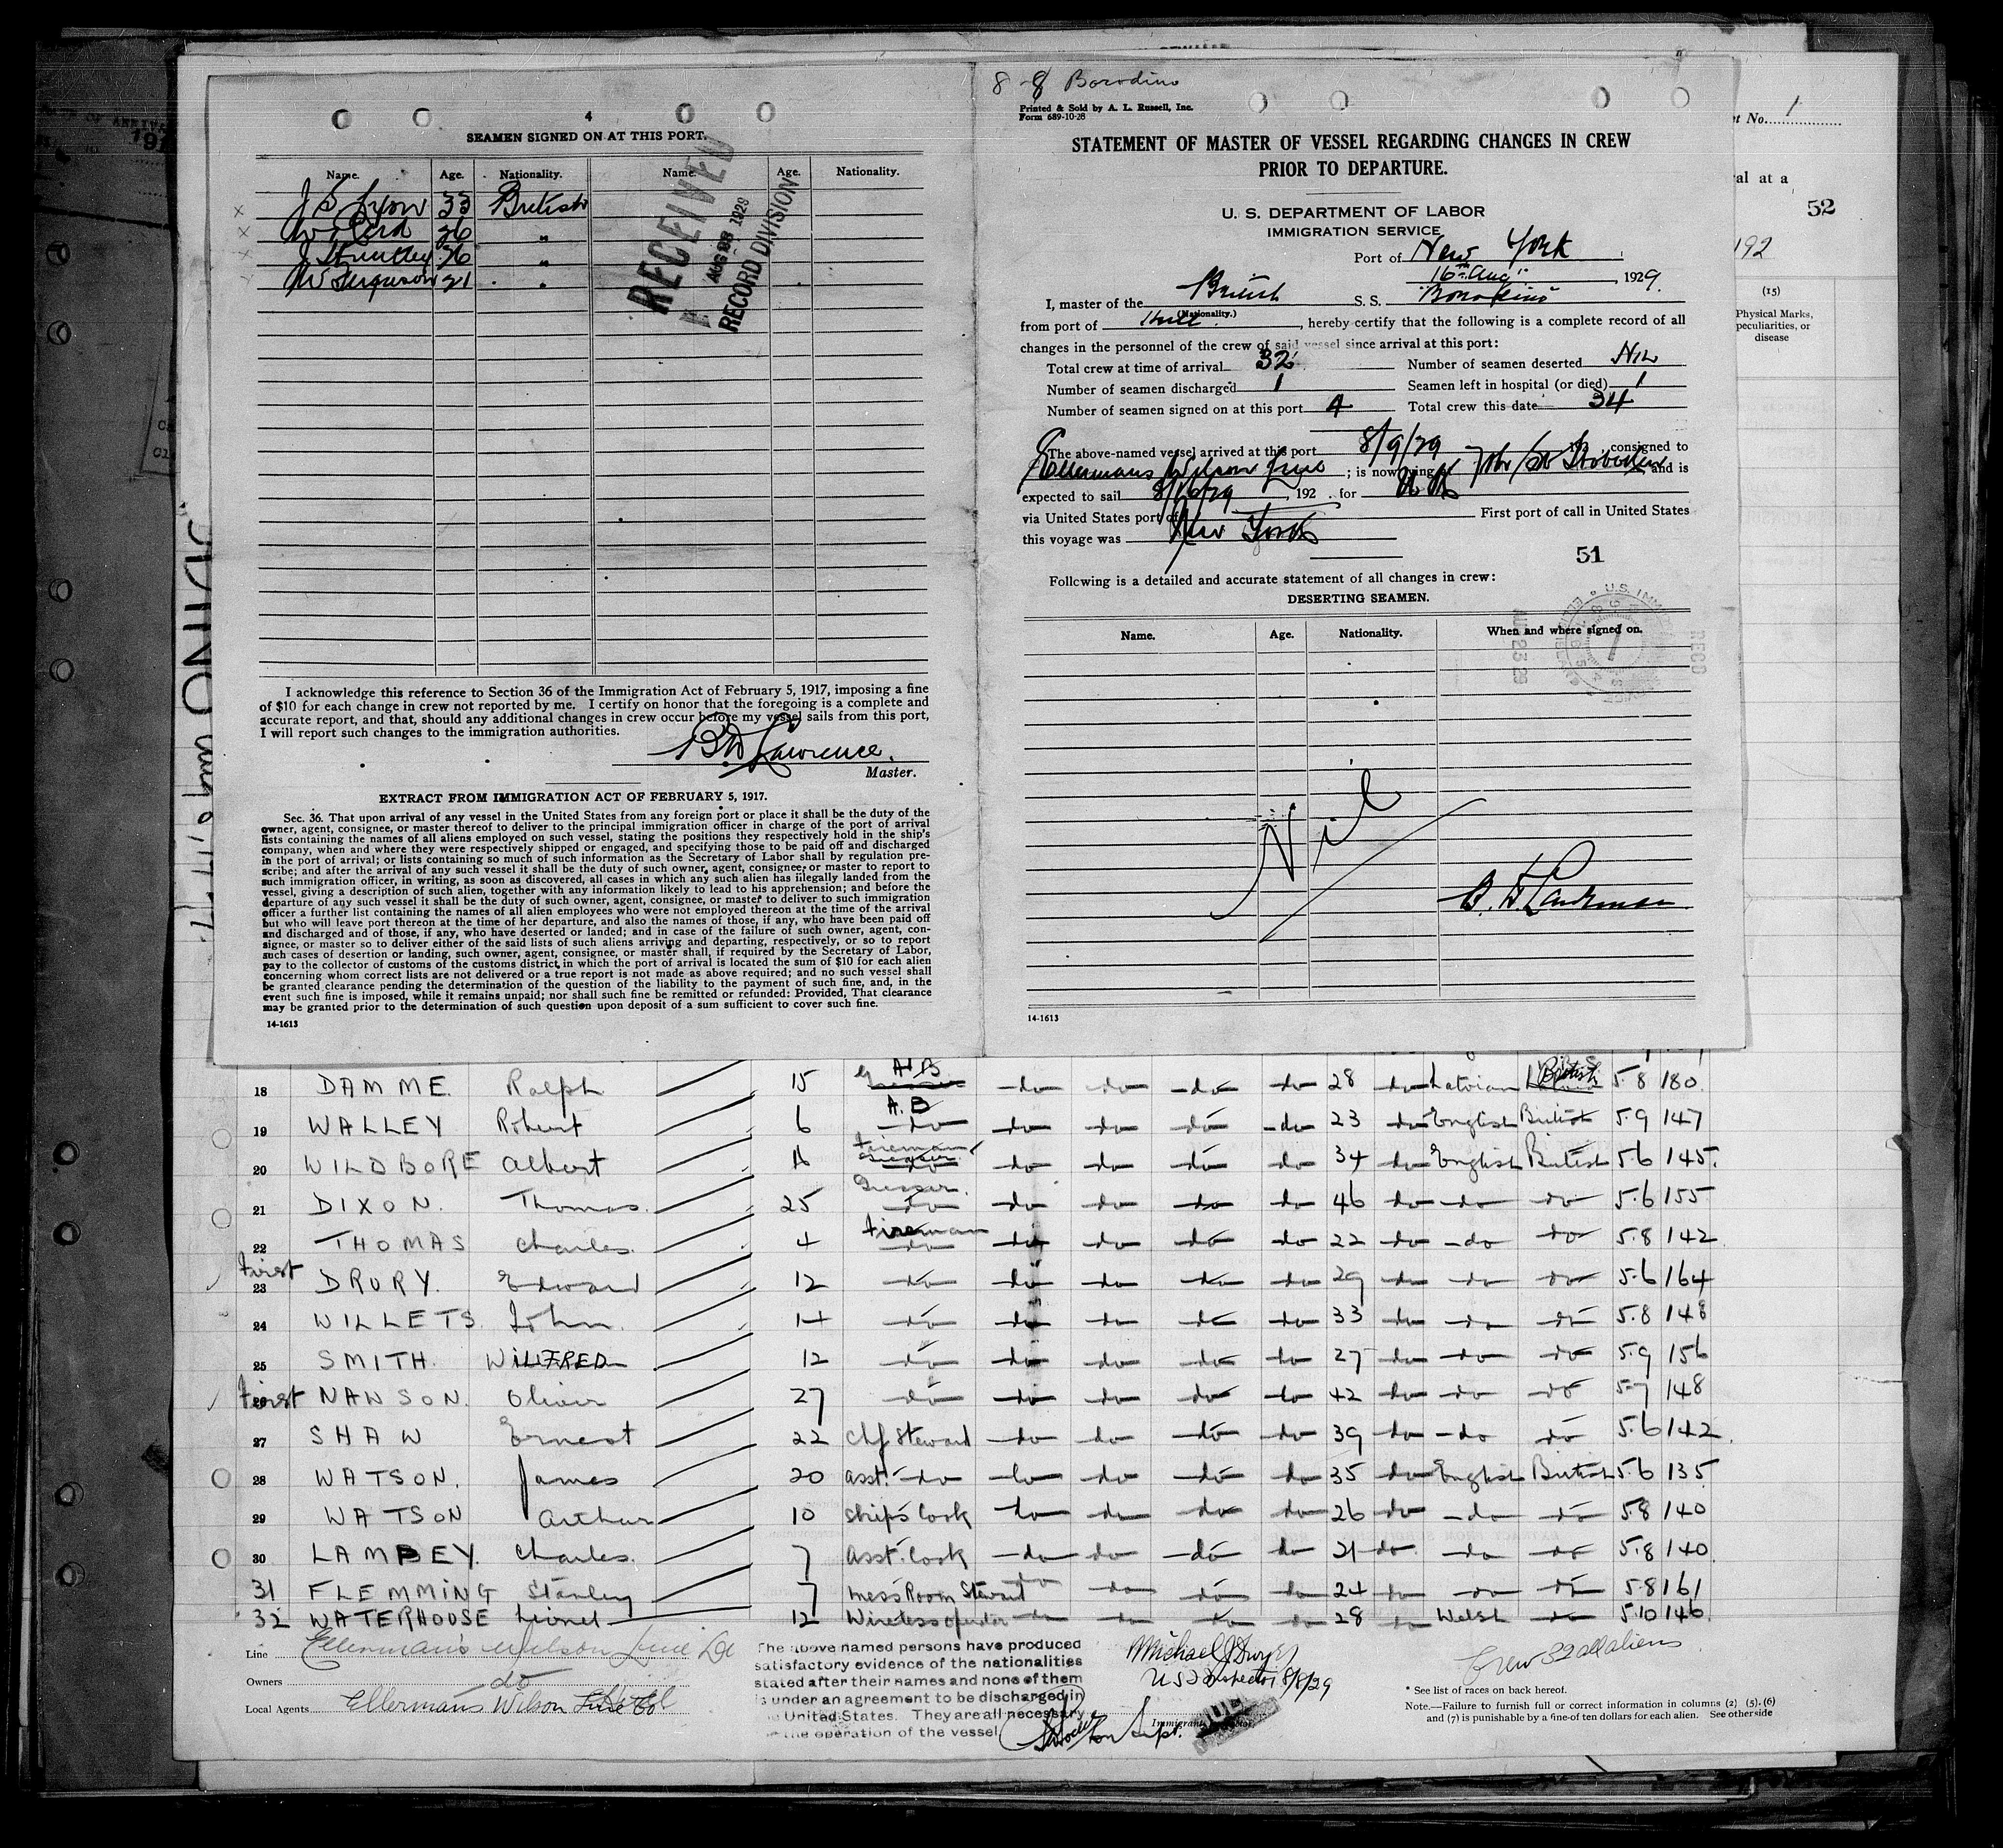 4
SEAMEN SIGNED ON AT THIS PORT.
Name. Age. Nationality. Name. Age. Nationality.
J S Lyon 33 British
26 "
J Huntley 36 "
W Ferguson 21 "
RECEIVED
AUG 28 1929
RECORD DIVISION
I acknowledge this reference to Section 36 of the Immigration Act of February 5, 1917, imposing a fine
of $10 for each change in crew not reported by me. I certify on honor that the foregoing is a complete and
accurate report, and that, should any additional changes in crew occur before my vessel sails from this port,
I will report such changes to the immigration authorities.
B W Lawrence.
Master.
EXTRACT FROM IMMIGRATION ACT OF FEBRUARY 5, 1917.
Sec. 36. That upon arrival of any vessel in the United States from any foreign port or place it shall be the duty of the
owner, agent, consignee, or master thereof to deliver to the principal immigration officer in charge of the port of arrival
lists containing the names of all aliens employed on such vessel, stating the positions they respectively hold in the ship's
company, when and where they were respectively shipped or engaged, and specifying those to be paid off and discharged
in the port of arrival; or lists containing so much of such information as the Secretary of Labor shall by regulation pre-
scribe; and after the arrival of any such vessel it shall be the duty of such owner, agent, consignee, or master to report to
such immigration officer, in writing, as soon as discovered, all cases in which any such alien has illegally landed from the
vessel, giving a description of such alien, together with any information likely to lead to his apprehension; and before the
departure of any such vessel it shall be the duty of such owner, agent, consignee, or master to deliver to such immigration
officer a further list containing the names of all alien employees who were not employed thereon at the time of the arrival
but who will leave port thereon at the time of her departure, and also the names of those, if any, who have been paid off
and discharged and of those, if any, who have deserted or landed; and in case of the failure of such owner, agent, con-
signee, or master so to deliver either of the said lists of such aliens arriving and departing, respectively, or so to report
such cases of desertion or landing, such owner, agent, consignee, or master shall, if required by the Secretary of Labor,
pay to the collector of customs of the customs district in which the port of arrival is located the sum of $10 for each alien
concerning whom correct lists are not delivered or a true report is not made as above required; and no such vessel shall
be granted clearance pending the determination of the question of the liability to the payment of such fine, and, in the
event such fine is imposed, while it remains unpaid; nor shall such fine be remitted or refunded: Provided, That clearance
may be granted prior to the determination of such question upon deposit of a sum sufficient to cover such fine.
14-1613
8-8 Borodino
Printed & Sold by A. L. Russell, Inc.
Form 689-10-28
STATEMENT OF MASTER OF VESSEL REGARDING CHANGES IN CREW
PRIOR TO DEPARTURE.
U. S. DEPARTMENT OF LABOR
IMMIGRATION SERVICE
Port of New York
16th Aug , 1929.
I, master of the British S. S. "Borodino"
(Nationality.)
from port of Hull , hereby certify that the following is a complete record of all
changes in the personnel of the crew of said vessel since arrival at this port:
Total crew at time of arrival 32 Number of seamen deserted Nil
Number of seamen discharged 1 Seamen left in hospital (or died) 1
Number of seamen signed on at this port 4 Total crew this date 34
The above-named vessel arrived at this port 8/9/29 192 consigned to
Ellermans Wilson Line ; is now lying 7th St Hoboken and is
expected to sail 8/16/29 , 192 . for
via United States port of First port of call in United States
this voyage was New York
51
Following is a detailed and accurate statement of all changes in crew:
DESERTING SEAMEN.
Name. Age. Nationality. When and where signed on.
Nil
t No. 1
al at a
52
192
(15)
Physical Marks,
peculiarities, or
disease
18 DAMME. Ralph 15 A.B. do do do do 28 do Latvian British 5.8 180
19 WALLEY Robert 6 A.B do do do do do 23 do English British 5.9 147
20 WILDBORE Albert Fireman do do do do do 34 do English British 5.6 145.
21 DIXON. Thomas. 25 Greaser. do do do do do 46 do do do 5.6 155
22 THOMAS Charles. 4 Fireman do do do do do 22 do do do 5.8 142
First 23 DRURY. Edward 12 do do do do do 29 do do do 5.6 164
24 WILLETS. John. 14 do do do do do 33 do do do 5.8 148
25 SMITH. WILFRED 12 do do do do do 27 do do do 5.9 156
First NAWSON. Oliver 27 do do do do do 42 do do do 5.7 148
27 SHAW Ernest 22 Chf Steward do do do do 39 do do do 5.6 142.
28 WATSON. James 20 asst. do do do do do 35 do English British 5.6 135
29 WATSON Arthur 10 Ship's Cook do do do do 26 do do do 5.8 140
30 LAMBEY. Charles. 7 Asst. Cook do do do do 21 do do do 5.8 140.
31 FLEMMING Stanley 7 Mess Room Steward do do do do 24 do do do 5.8 161
32 WATERHOUSE Lionel 12 Wireless operator do do do do 28 do Welsh do 5.10 146.
Line Ellerman's Wilson Line Ld
Owners do
Local Agents Ellermans Wilson Line
The above named persons have produced
satisfactory evidence of the nationalities
stated after their names and none of them
is under an agreement to be discharged in
United States. They are all necessary
the operation of the vessel
Michael J Dwyer
US Inspector 8/8/29
Immigrant Inspector
Supt.
Crew 32 all aliens
* See list of races on back hereof.
Note.—Failure to furnish full or correct information in columns (2) (5), (6)
and (7) is punishable by a fine of ten dollars for each alien. See other side